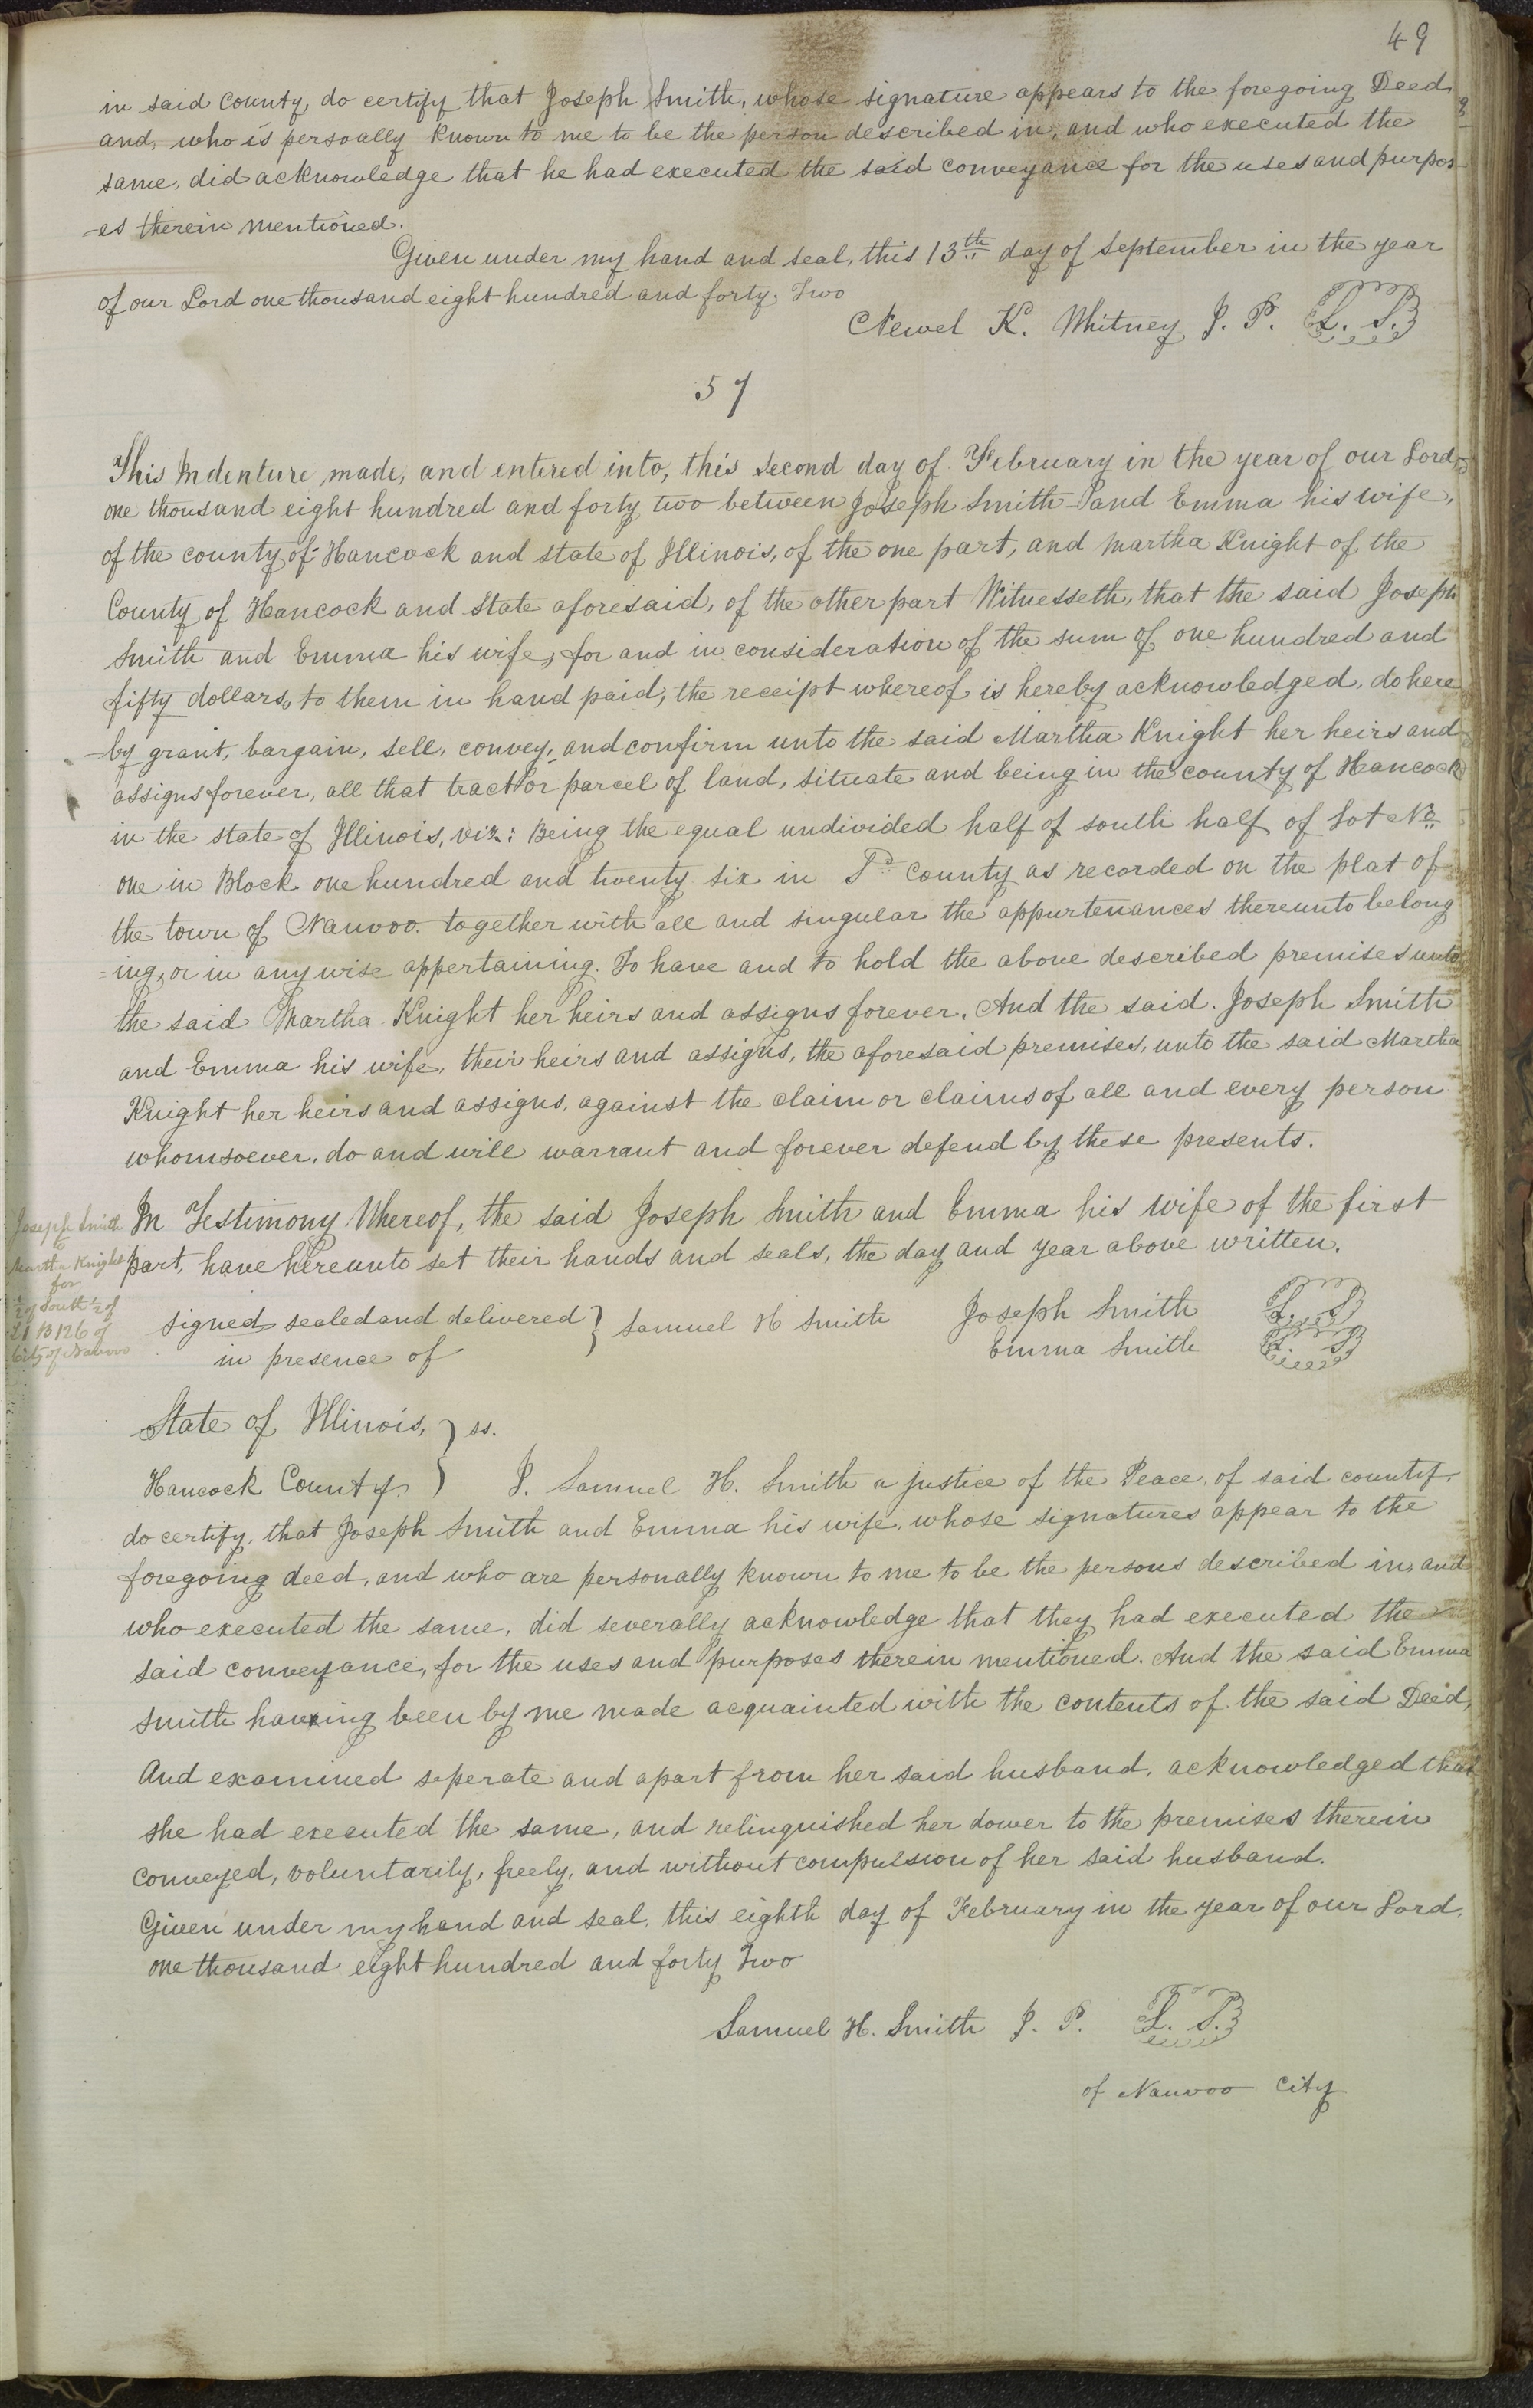 49
in said county, do certify that Joseph Smith, whose signature appears to the foregoing Deed,
and, who is persoally known to me to be the person described in, and who executed the
same, did acknowledge that he had executed the said conveyance for the uses and purpos
-es therein mentioned.
Given under my hand and seal, this 13th day of September in the year
of our Lord one thousand eight hundred and forty, Two
Newel K. Whitney J. P. L. S.
57
This Indenture, made, and entered into, this second day of February in the year of our Lord
one thousand eight hundred and forty two between Joseph Smith and Emma his wife,
of the county of Hancock and state of Illinois, of the one part, and Martha Knight of the
County of Hancock and State aforesaid, of the other part Witnesseth, that the said Joseph
Smith and Emma his wife, for and in consideration of the sum of one hundred and
fifty dollars, to them in hand paid, the receipt whereof is hereby acknowledged, do here
-by grant, bargain, sell, convey, and confirm unto the said Martha Knight her heirs and
assigns forever, all that tract or parcel of land, situate and being in the county of Hancock
in the state of Illinois, viz: Being the equal undivided half of south half of Lot No
one in Block one hundred and twenty six in county as recorded on the plat of
the town of Nauvoo. together with all and singular the appurtenances thereunto belong
=ing, or in any wise appertaining. To have and to hold the above described premises unto
the said Martha Knight her heirs and assigns forever. And the said. Joseph Smith
and Emma his wife, their heirs and assigns, the aforesaid premises, unto the said Martha
Knight her heirs and assigns, against the claim or claims of all and every person
whomsoever, do and will warrant and forever defend by these presents.
In Testimony Whereof, the said Joseph Smith and Emma his wife of the first
part, have hereunto set their hands and seals, the day and year above written.
Joseph Smith
to
Martha Knight
for
½ of South ½ of
L1 B126 of
City of Nauvoo
signed sealed and delivered } Samuel H Smith Joseph Smith L. S.
in presence of Emma Smith L. S.
State of Illinois, } ss.
Hancock County. } I. Samuel H. Smith a justice of the Peace, of said county,
do certify, that Joseph Smith and Emma his wife, whose signatures appear to the
foregoing deed, and who are personally known to me to be the persons described in, and
who executed the same, did severally acknowledge that they had executed the
said conveyance, for the uses and purposes therein mentioned. And the said Emma
Smith having been by me made acquainted with the contents of the said Deed,
And examined seperate and apart from her said husband, acknowledged that
she had executed the same, and relinquished her dower to the premises therein
conveyed, voluntarily, freely, and without compulsion of her said husband.
Given under my hand and seal, this eighth day of February in the year of our Lord,
one thousand eight hundred and forty Two
Samuel H. Smith J. P. L. S.
of Nauvoo City